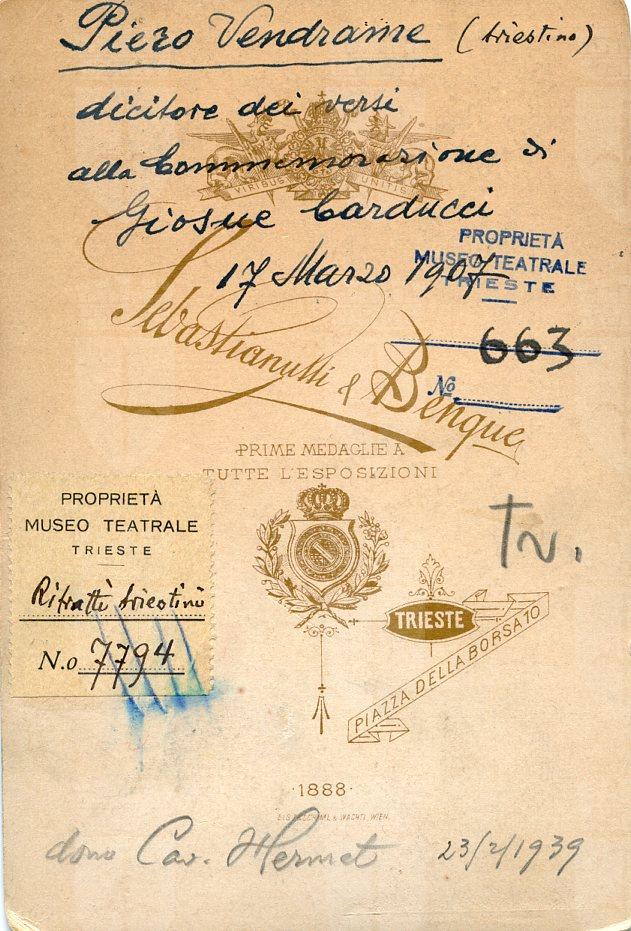 Piero Vendrame (triestino)
dicitore dei versi
alla Commemorazione di
VIRIBUS UNITIS
Giosue Carducci
17 Marzo 1907
PROPRIETÀ
MUSEO TEATRALE
TRIESTE
663
No.
Sebastianutti & Benque
PRIME MEDAGLIE A
TUTTE L'ESPOSIZIONI
PROPRIETÀ
MUSEO TEATRALE
TRIESTE
Ritratti triestini
N.o 7794
TRIESTE
PIAZZA DELLA BORSA 10
1888
& WACHTL, WIEN.
dono Cav. Hermet 23/2/1939